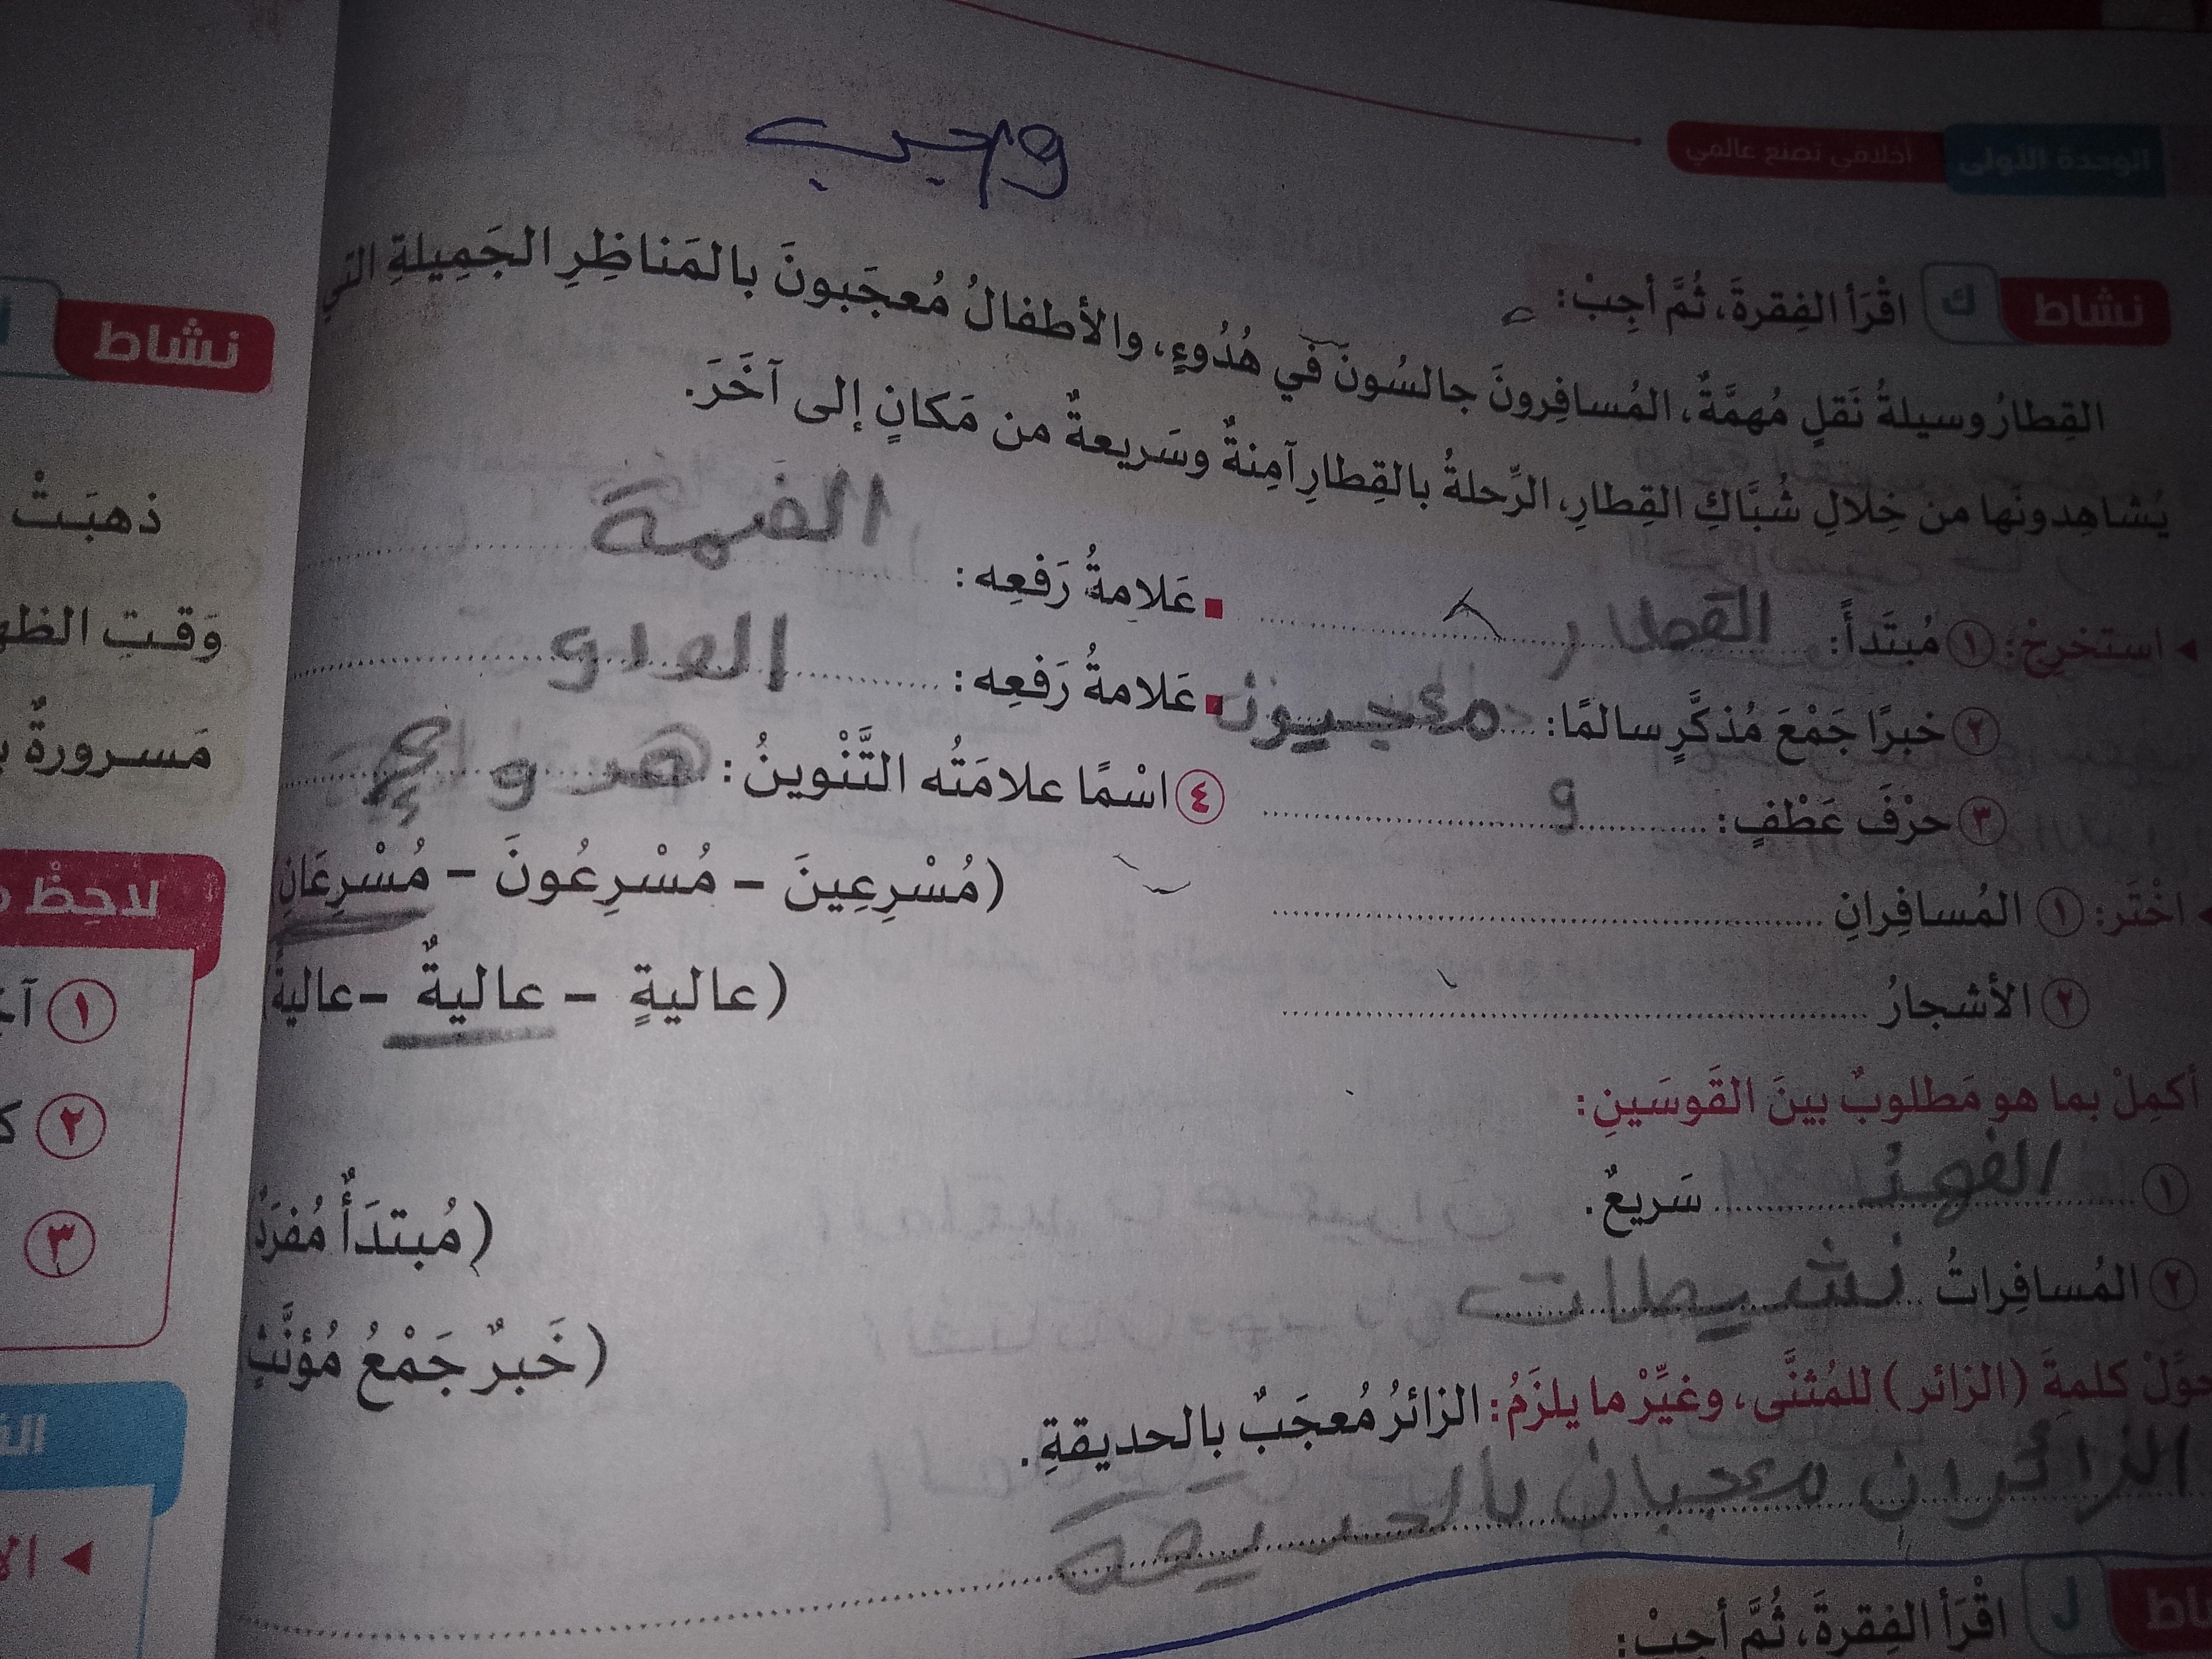 الوحدة الأولى أخلاقي تصنع عالمي
واجب
نشاط ك اقْرَأ الفِقرةَ، ثُمَّ أجِبْ:
القِطارُ وسيلةُ نَقلٍ مُهمَّةٌ، المُسافِرونَ جالسُونَ في هُدُوءٍ، والأطفالُ مُعجَبونَ بالمَناظِرِ الجَمِيلةِ التي
يُشاهِدونَها من خِلالِ شُبَّاكِ القِطارِ، الرِّحلةُ بالقِطارِ آمِنةٌ وسَريعةٌ من مَكانٍ إلى آخَرَ.
◂ استخرِجْ: ١ مُبتَدأً: القطار ■ عَلامةُ رَفعِه: الضمة
٢ خبرًا جَمْعَ مُذكَّرٍ سالمًا: معجبون ■ عَلامةُ رَفعِه: الواو
٣ حرْفَ عَطْفٍ: و ٤ اسْمًا علامَتُه التَّنْوينُ: هدوءٍ
◂ اخْتَر: ١ المُسافِرانِ (مُسْرِعِينَ – مُسْرِعُونَ – مُسْرِعَانِ
٢ الأشجارُ (عاليةٍ – عاليةٌ – عاليةً
أكمِلْ بما هو مَطلوبٌ بينَ القَوسَينِ:
١ الفهد سَريعٌ. (مُبتدَأٌ مُفرَدٌ
٢ المُسافِراتُ نشيطات (خَبرٌ جَمْعُ مُؤنَّثٍ
حوِّلْ كلمةَ (الزائر) للمُثنَّى، وغيِّرْ ما يلزَمُ: الزائرُ مُعجَبٌ بالحديقةِ.
الزائران معجبان بالحديقة
اقْرَأ الفِقرةَ، ثُمَّ أجِبْ:
نشاط
ذهبَتْ
وَقتِ
مَسرورةٌ
لاحِظْ
١
٢
٣